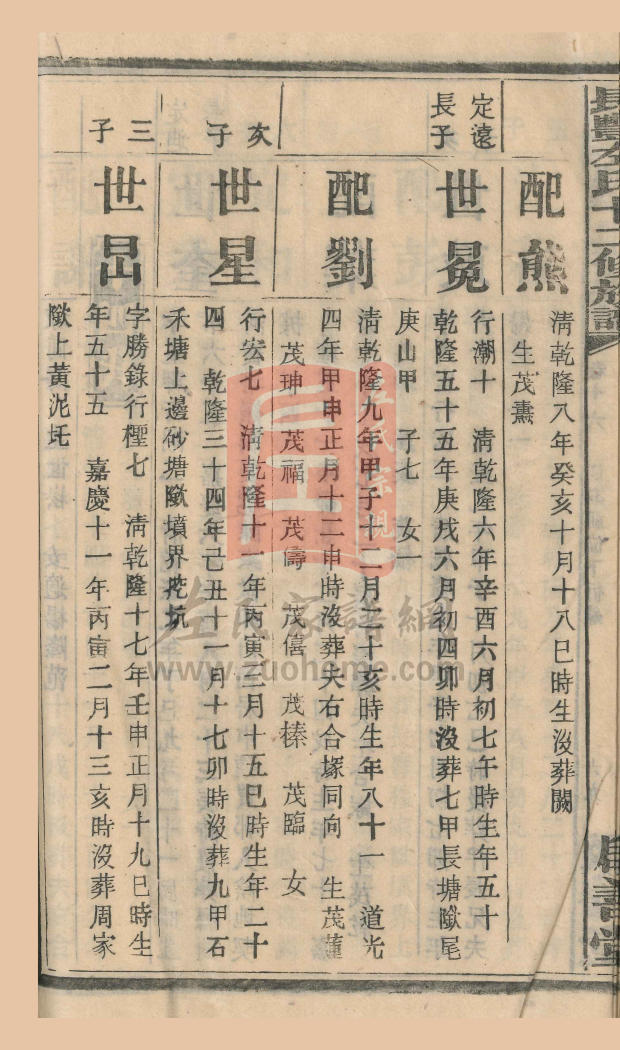 長豐左氏十二修族譜
善堂
配熊
清乾隆八年癸亥十月十八巳時生沒葬闕
生茂薰
定遠
長子
世冕
行潮十 清乾隆六年辛酉六月初七午時生年五十
乾隆五十五年庚戌六月初四卯時沒葬七甲長塘墘尾
庚山甲 子七 女一
配劉
清乾隆九年甲子十二月二十亥時生年八十一 道光
四年甲申正月十二申時沒葬夫右合塚同向 生茂蓮
茂珅 茂福 茂儔 茂僖 茂榛 茂臨 女
次
子
世星
行宏七 清乾隆十一年丙寅三月十五巳時生年二十
四 乾隆三十四年己丑十一月十七卯時沒葬九甲石
禾塘上邊砂塘墘墳界挖坑
三
子
世昂
字勝錄行檉七 清乾隆十七年壬申正月十九巳時生
年五十五 嘉慶十一年丙寅二月十三亥時沒葬周家
墘上黃泥坵
左氏宗親
左氏家譜網
www.zuohome.com